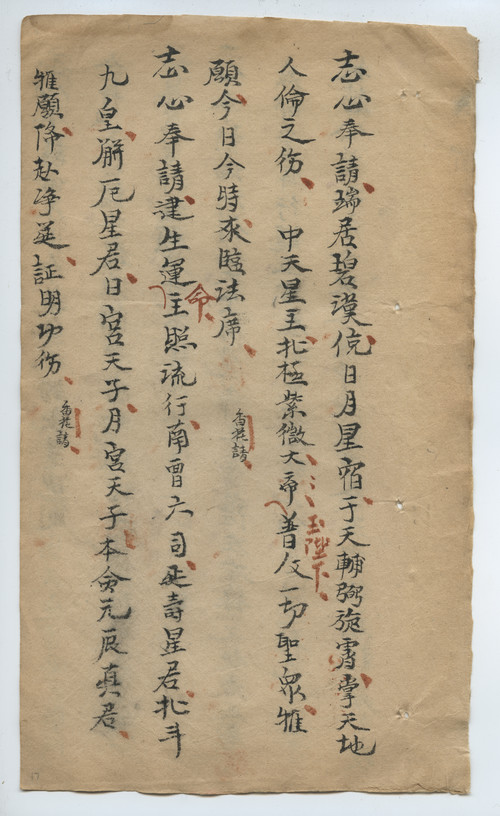 志心奉請端居碧漢統日月星宿于天輔弼旋霄掌天地
人倫之傍 中天星主北極紫微大帝玉陛下普及一切聖眾惟
願今日今時來臨法席 香花請
志心奉請建生運主命照流行南曹六司延壽星君北斗
九皇解厄星君日宮天子月宮天子本命元辰真君
惟願降赴净筵証明功傍 香花請